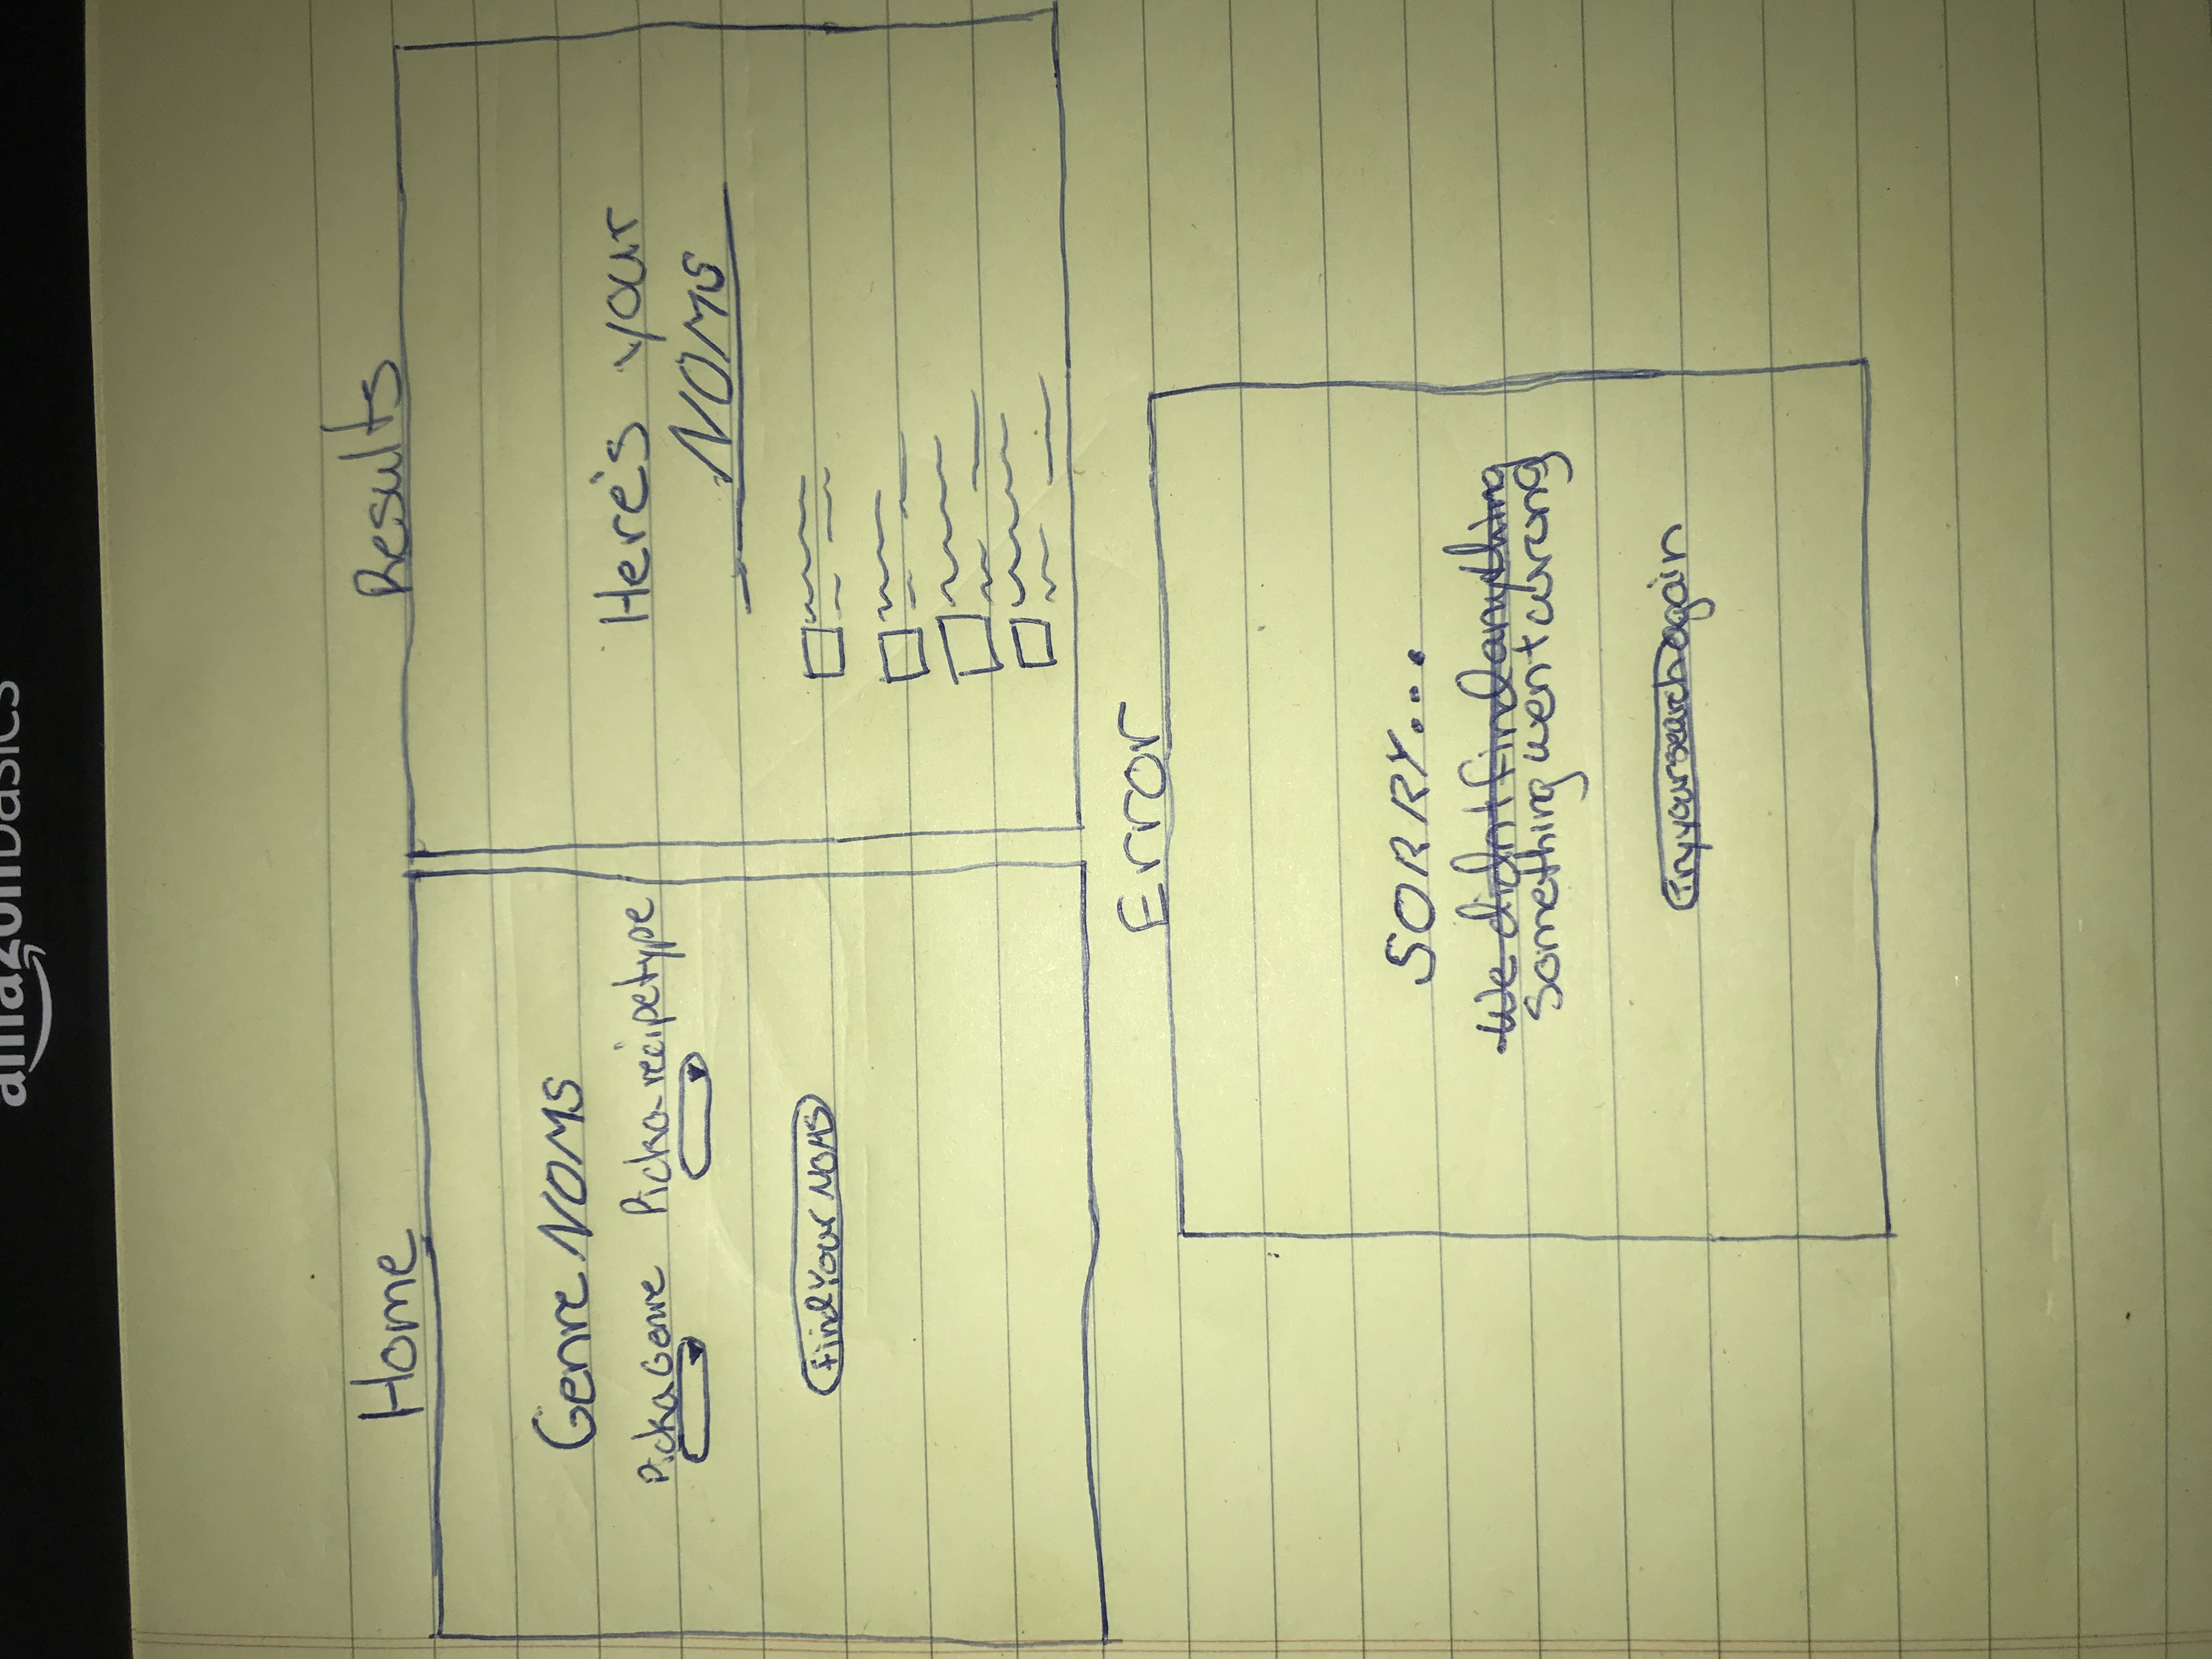 amazonbasics
Home
Genre NOMS
Pick a Genre Pick a recipe type
Find Your NOMS
Results
Here's your
NOMS
Error
SORRY...
We didn't find anything
Something went wrong
Try your search again